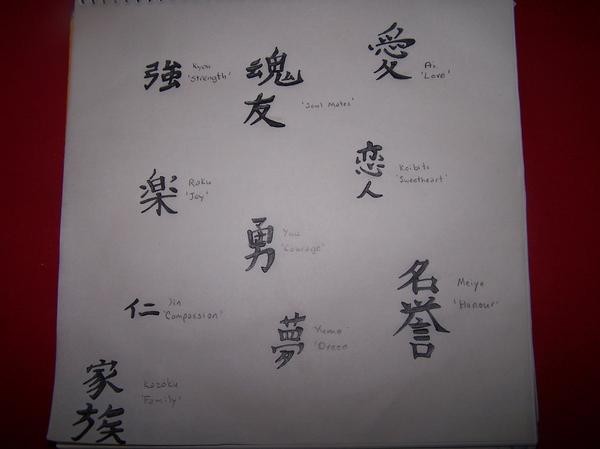 強
Kyou
'Strength'
魂
友
'Soul Mates'
愛
Ai
'Love'
楽
Raku
'Joy'
恋
人
Koibito
'Sweetheart'
勇
Yuu
'Courage'
名
誉
Meiyo
'Honour'
仁
Jin
'Compassion'
夢
Yume
家
族
Kazoku
'Family'